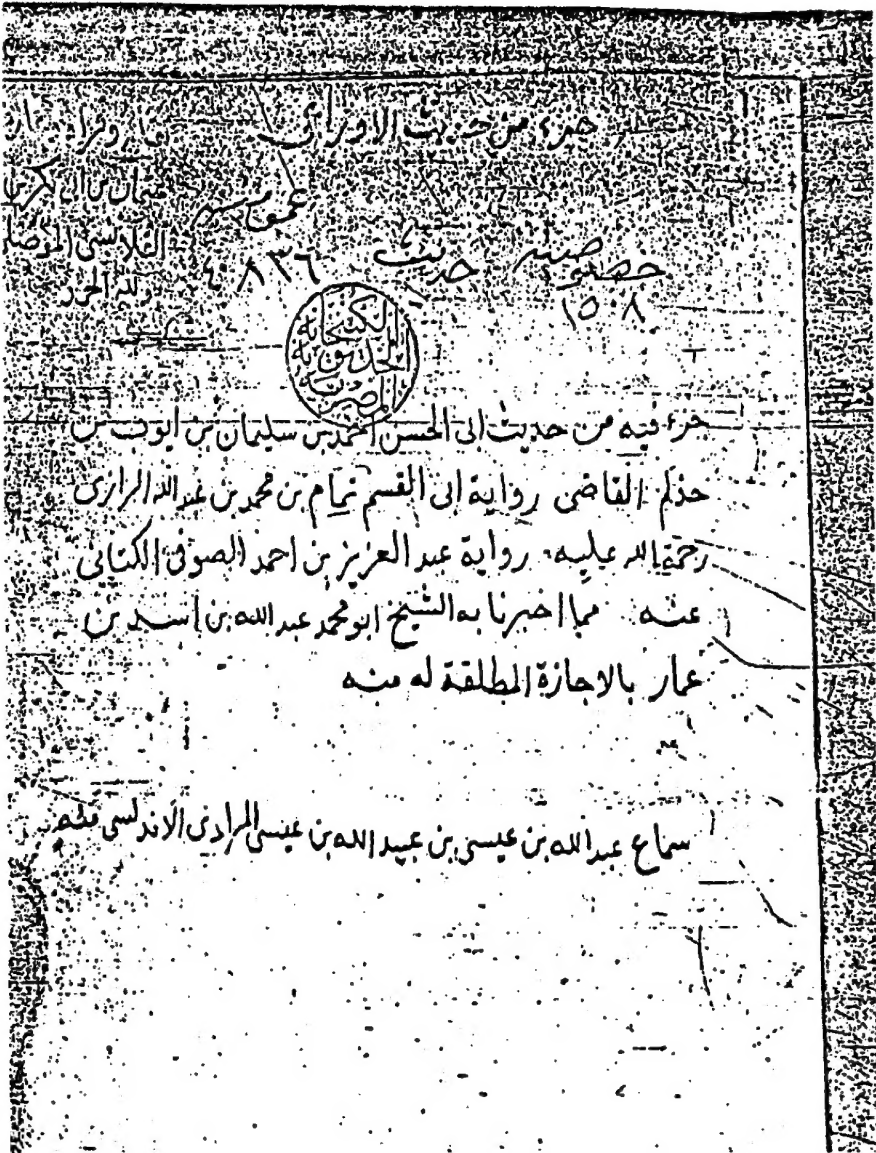 جزء من حديث الاوزاعى
خصوصية حديث
١٥٠٨
عمومية
٤٠٨٣٦
القلانسى
الكتبخانة
الخديوية
المصرية
جزء فيه من حديث ابى الحسن احمد بن سليمان بن ايوب بن
حذلم القاضى رواية ابى القسم تمام بن محمد بن عبد الله الرازى
رحمة الله عليه رواية عبد العزيز بن احمد الصوفى الكتانى
عنه مما اخبرنا به الشيخ ابو محمد عبد الله بن اسد بن
عمار بالاجازة المطلقة له منه
سماع عبد الله بن عيسى بن عبيد الله بن عيسى المرادى الاندلسى منه